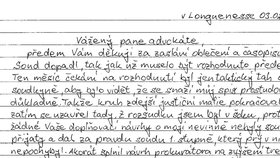 v Longuenesse 03.02
Vážený pane advokáte,
předem Vám děkuji za zaslání oblečení a časopisů
Soud dopadl, tak jak už muselo být rozhodnuto před
Ten měsíc čekání na rozhodnutí byl jen taktický tah
soudkyně, aby to vidět, že se snaží můj spis prostudov
důkladně. Takže kruh zdejší justiční mafie pokračoval
zatím se uzavřel tady. Z rozsudku jsem byl v šoku, proto
žádné Vaše doplňovat návrhy o mojí nevinně nebyly soud
přijaty a dát za pravdu soudu 1 stupně, který prý v
nepochybil! Akorát splnil návrh prokurátora na zvýšení tre